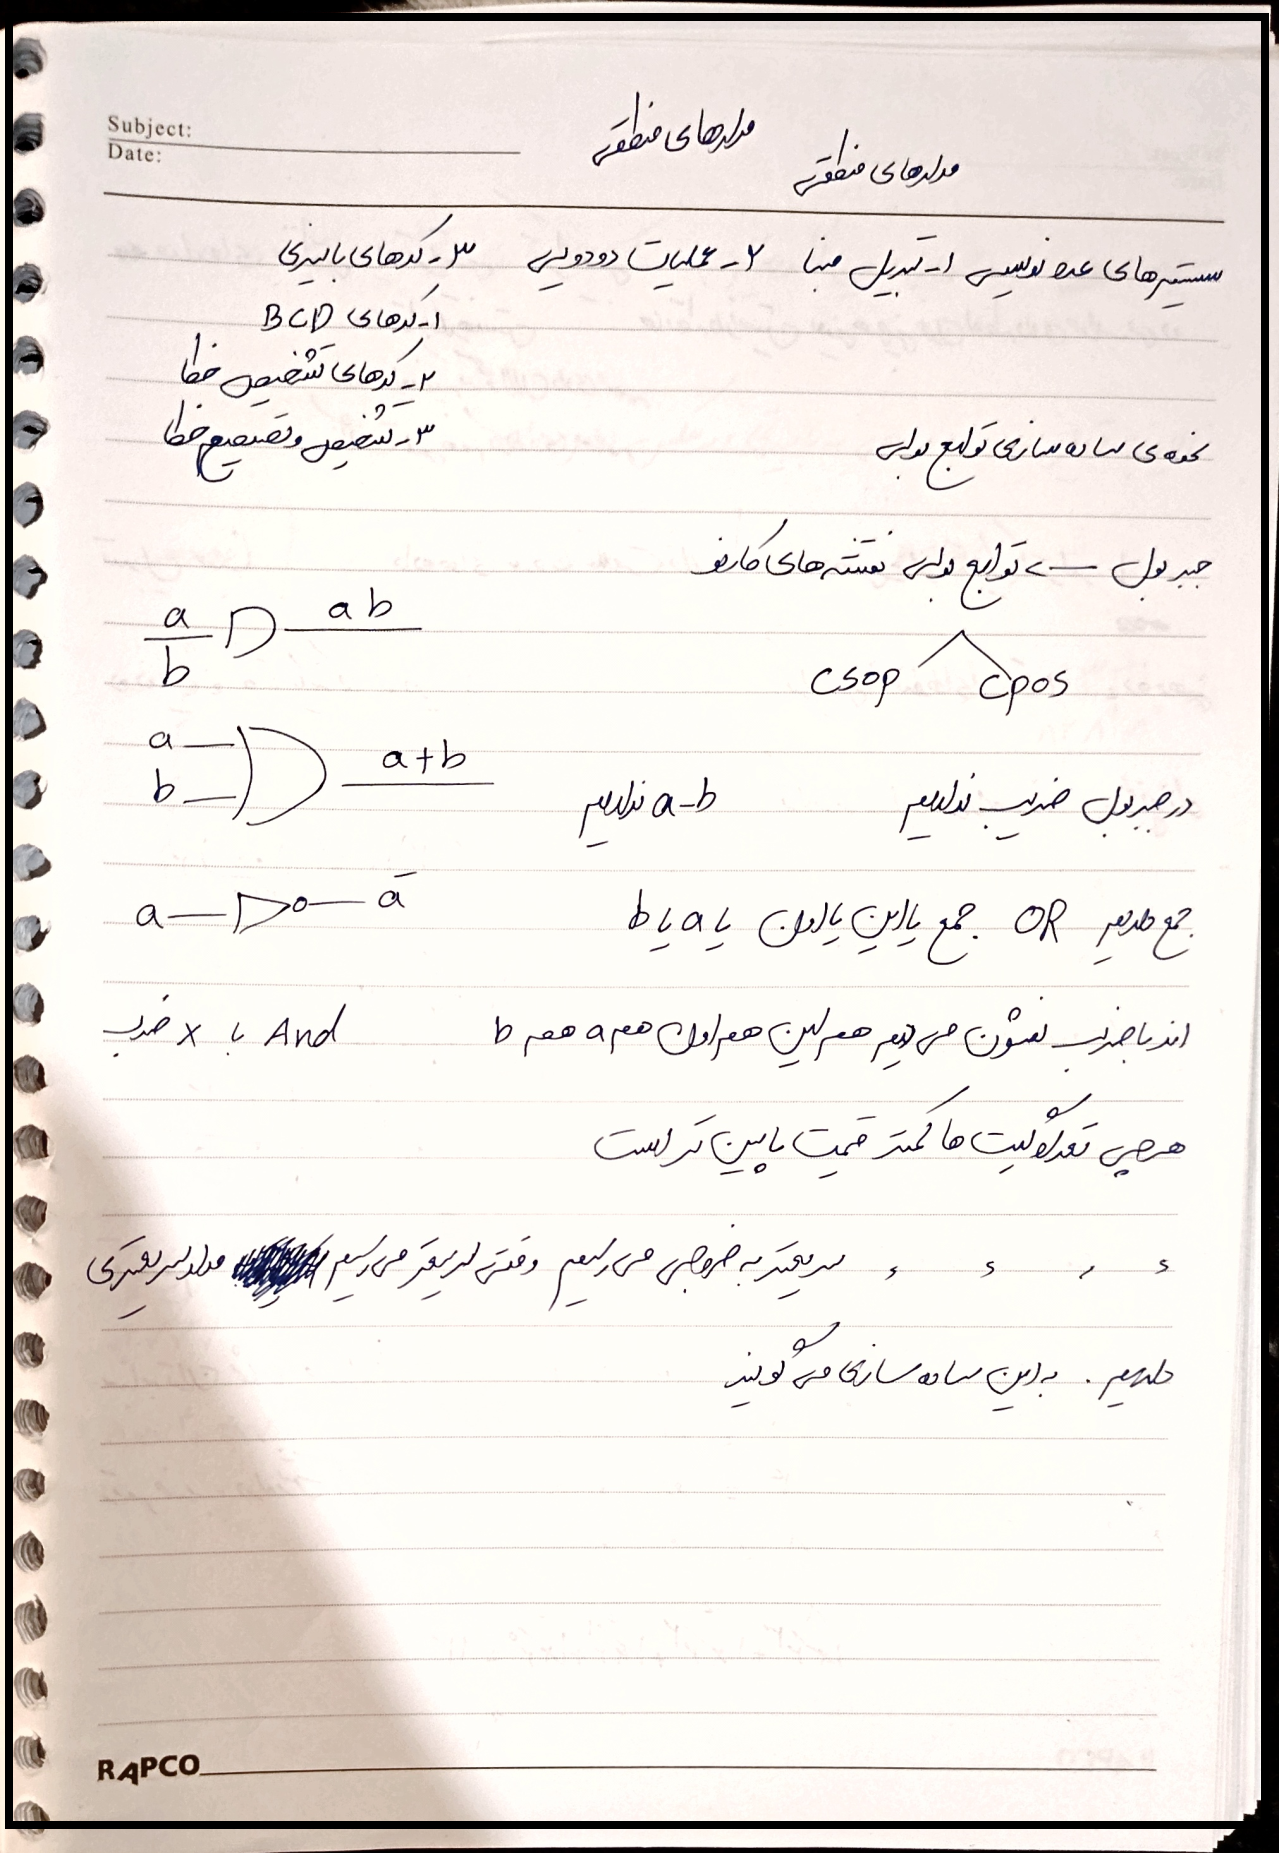 Subject:
Date:
مدارهای منطقی
مدارهای منطقی
سیستم‌های عدد نویسی ۱- تبدیل مبنا ۲- عملیات دودویی ۳- کدهای باینری
۱- کدهای BCD
۲- کدهای تشخیص خطا
۳- تشخیص و تصحیح خطا
نحوه‌ی ساده سازی توابع بولی
جبر بول → توابع بولی نقشه‌های کارنو
a
b
ab
CSOP CPOS
a
b
a+b
در جبر بول ضریب نداریم a-b نداریم
a ā
جمع داریم OR جمع یا این یا اون یا a یا b
اند با ضرب نشون می دیم هم این هم اون هم a هم b And با × ضرب
هر چی تعداد گیت ها کمتر قیمت پایین تر است
سریعتر به خروجی می رسیم وقتی سریعتر می رسیم مدار سریعتری
داریم. به این ساده سازی می گویند
RAPCO